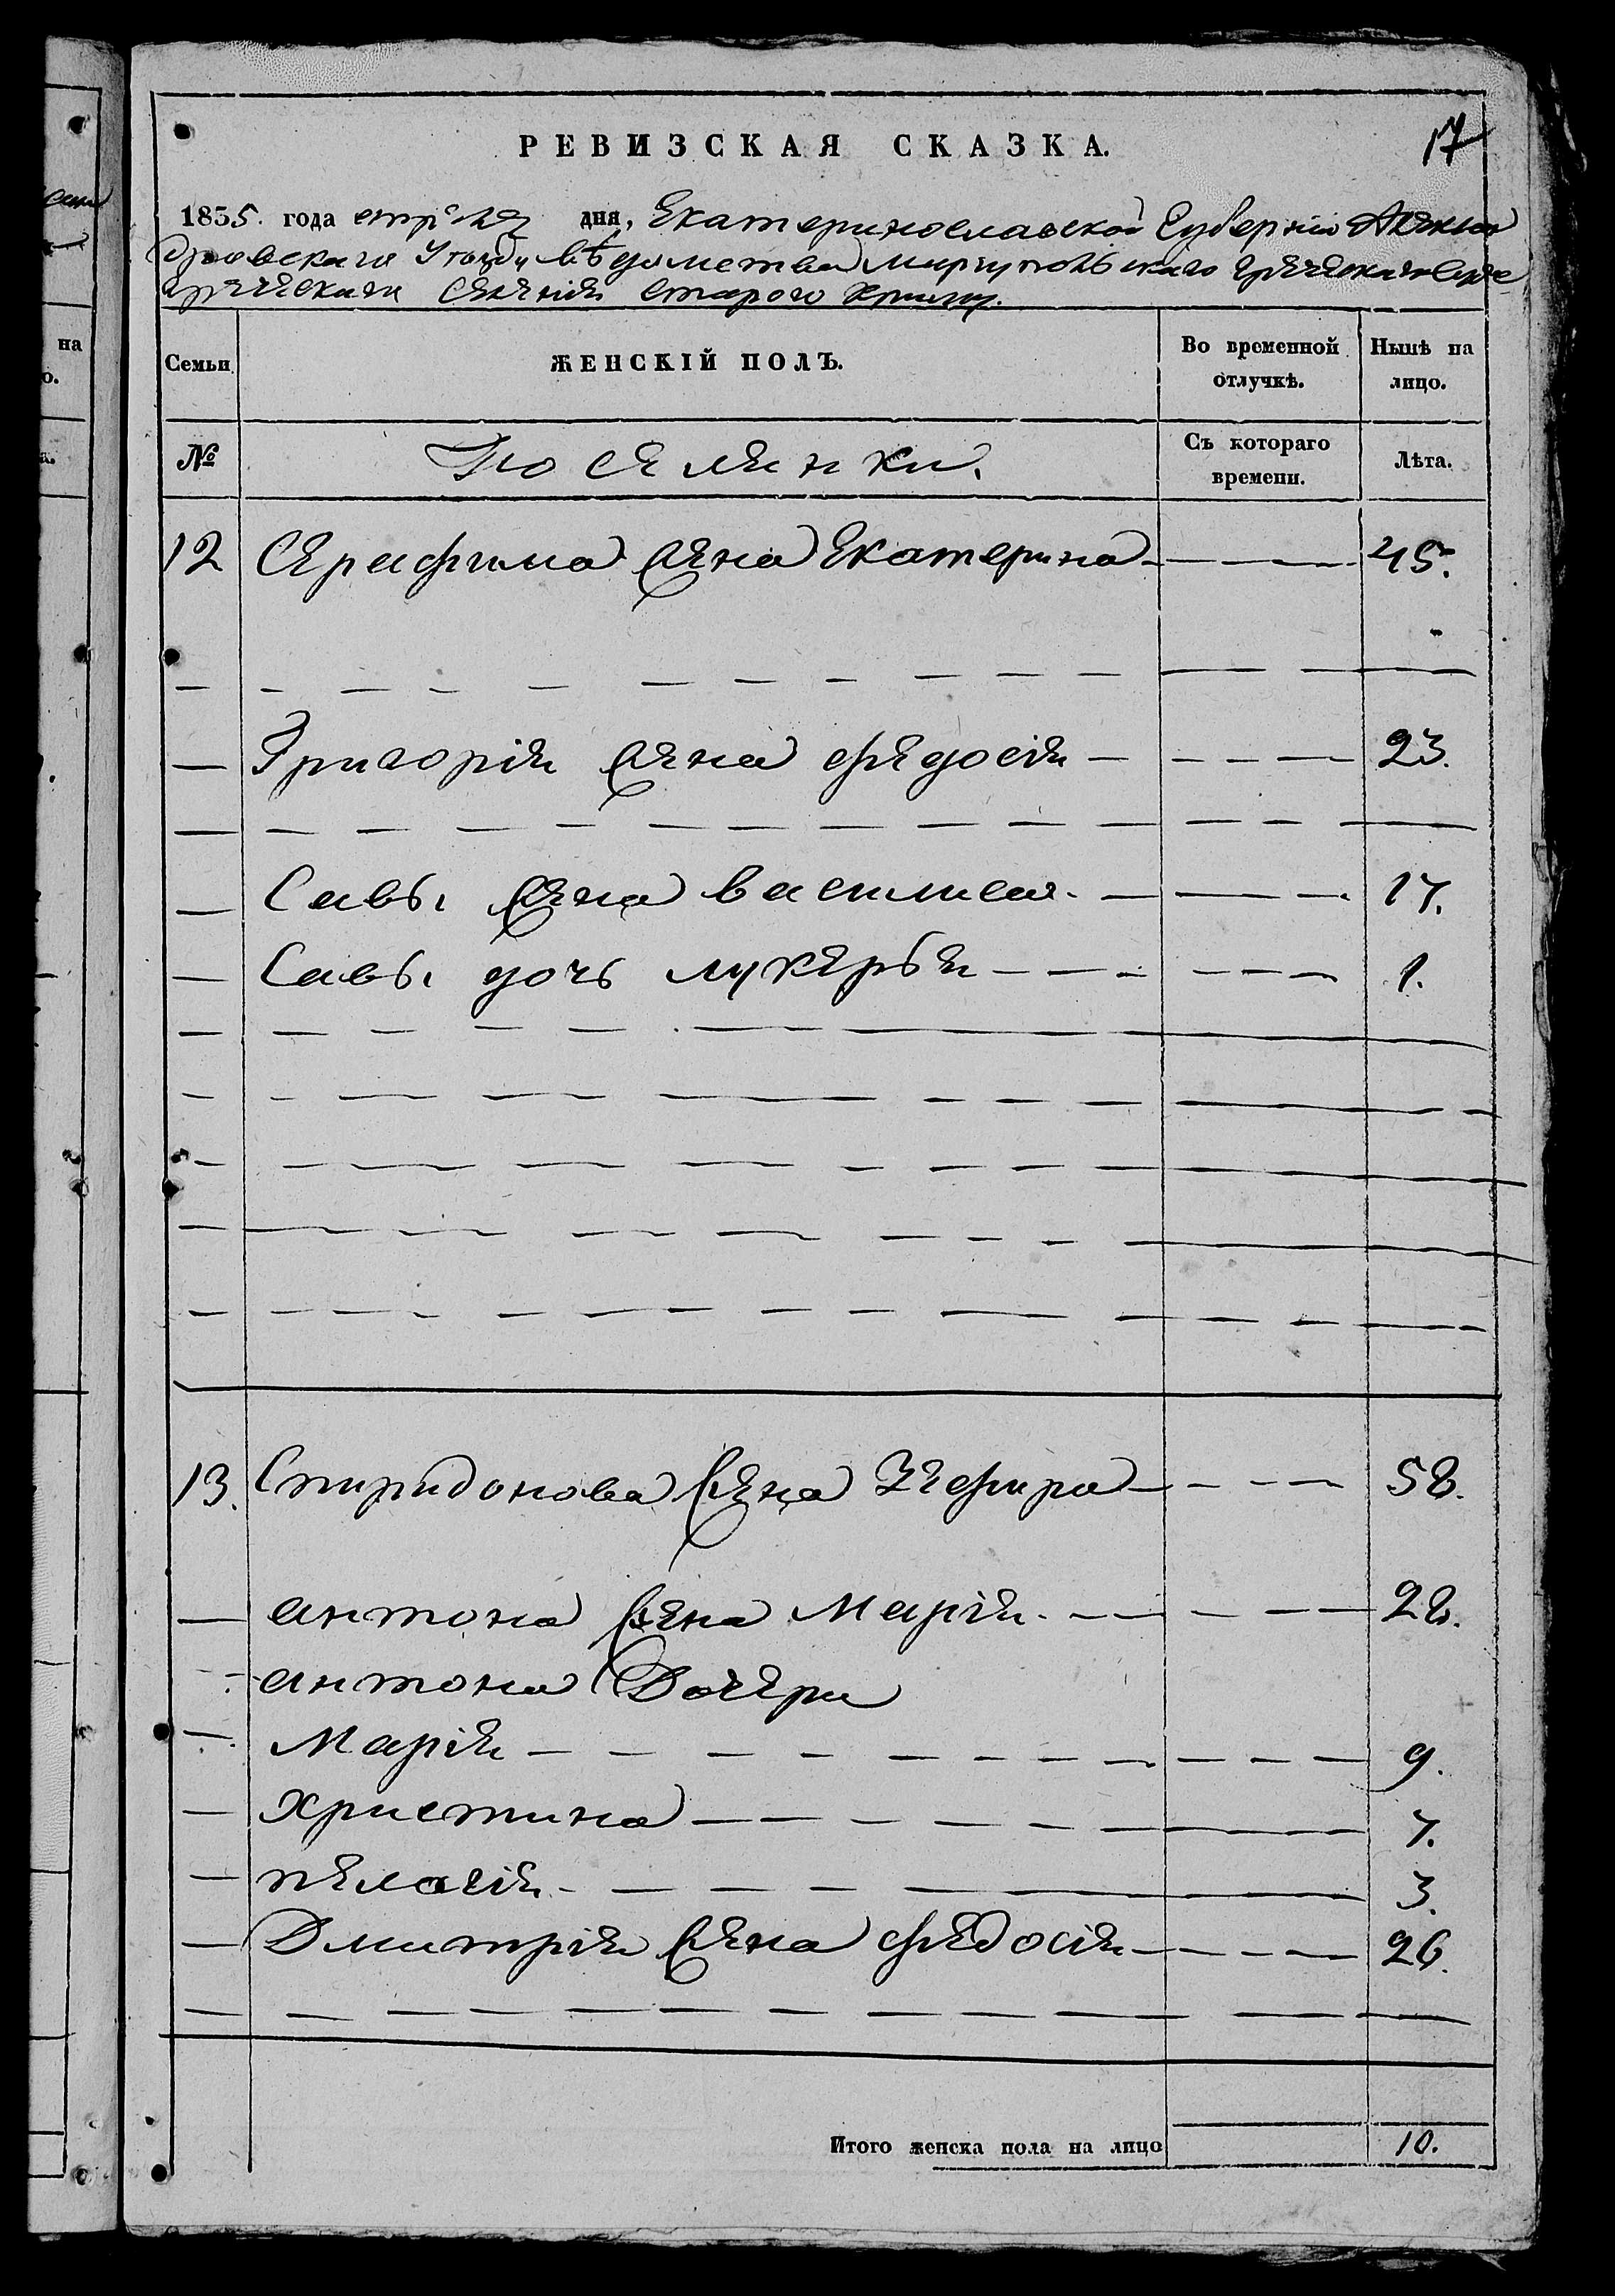 17
РЕВИЗСКАЯ СКАЗКА.
1835 года апрѣля дня, Екатеринославской Губерніи Алексан
дровскаго Уѣзда вѣдомства Мариупольскаго греческаго Суда
греческаго Селенія Стараго Крыму.
Семьи ЖЕНСКІЙ ПОЛЪ. Во временной отлучкѣ. Нынѣ на лицо.
№ Поселянки. Съ котораго времени. Лѣта.
12 Серафима жена Екатерина 45.
Григорія жена Федосія 23.
Савы жена Василиса 17.
Савы дочь Лукерья 1.
13. Спиридонова жена Зефира 58.
антона жена Марія 28.
антона Дочери
Марія 9.
Христина 7.
пелагія 3.
Дмитрія жена Федосія 26.
Итого женска пола на лицо 10.